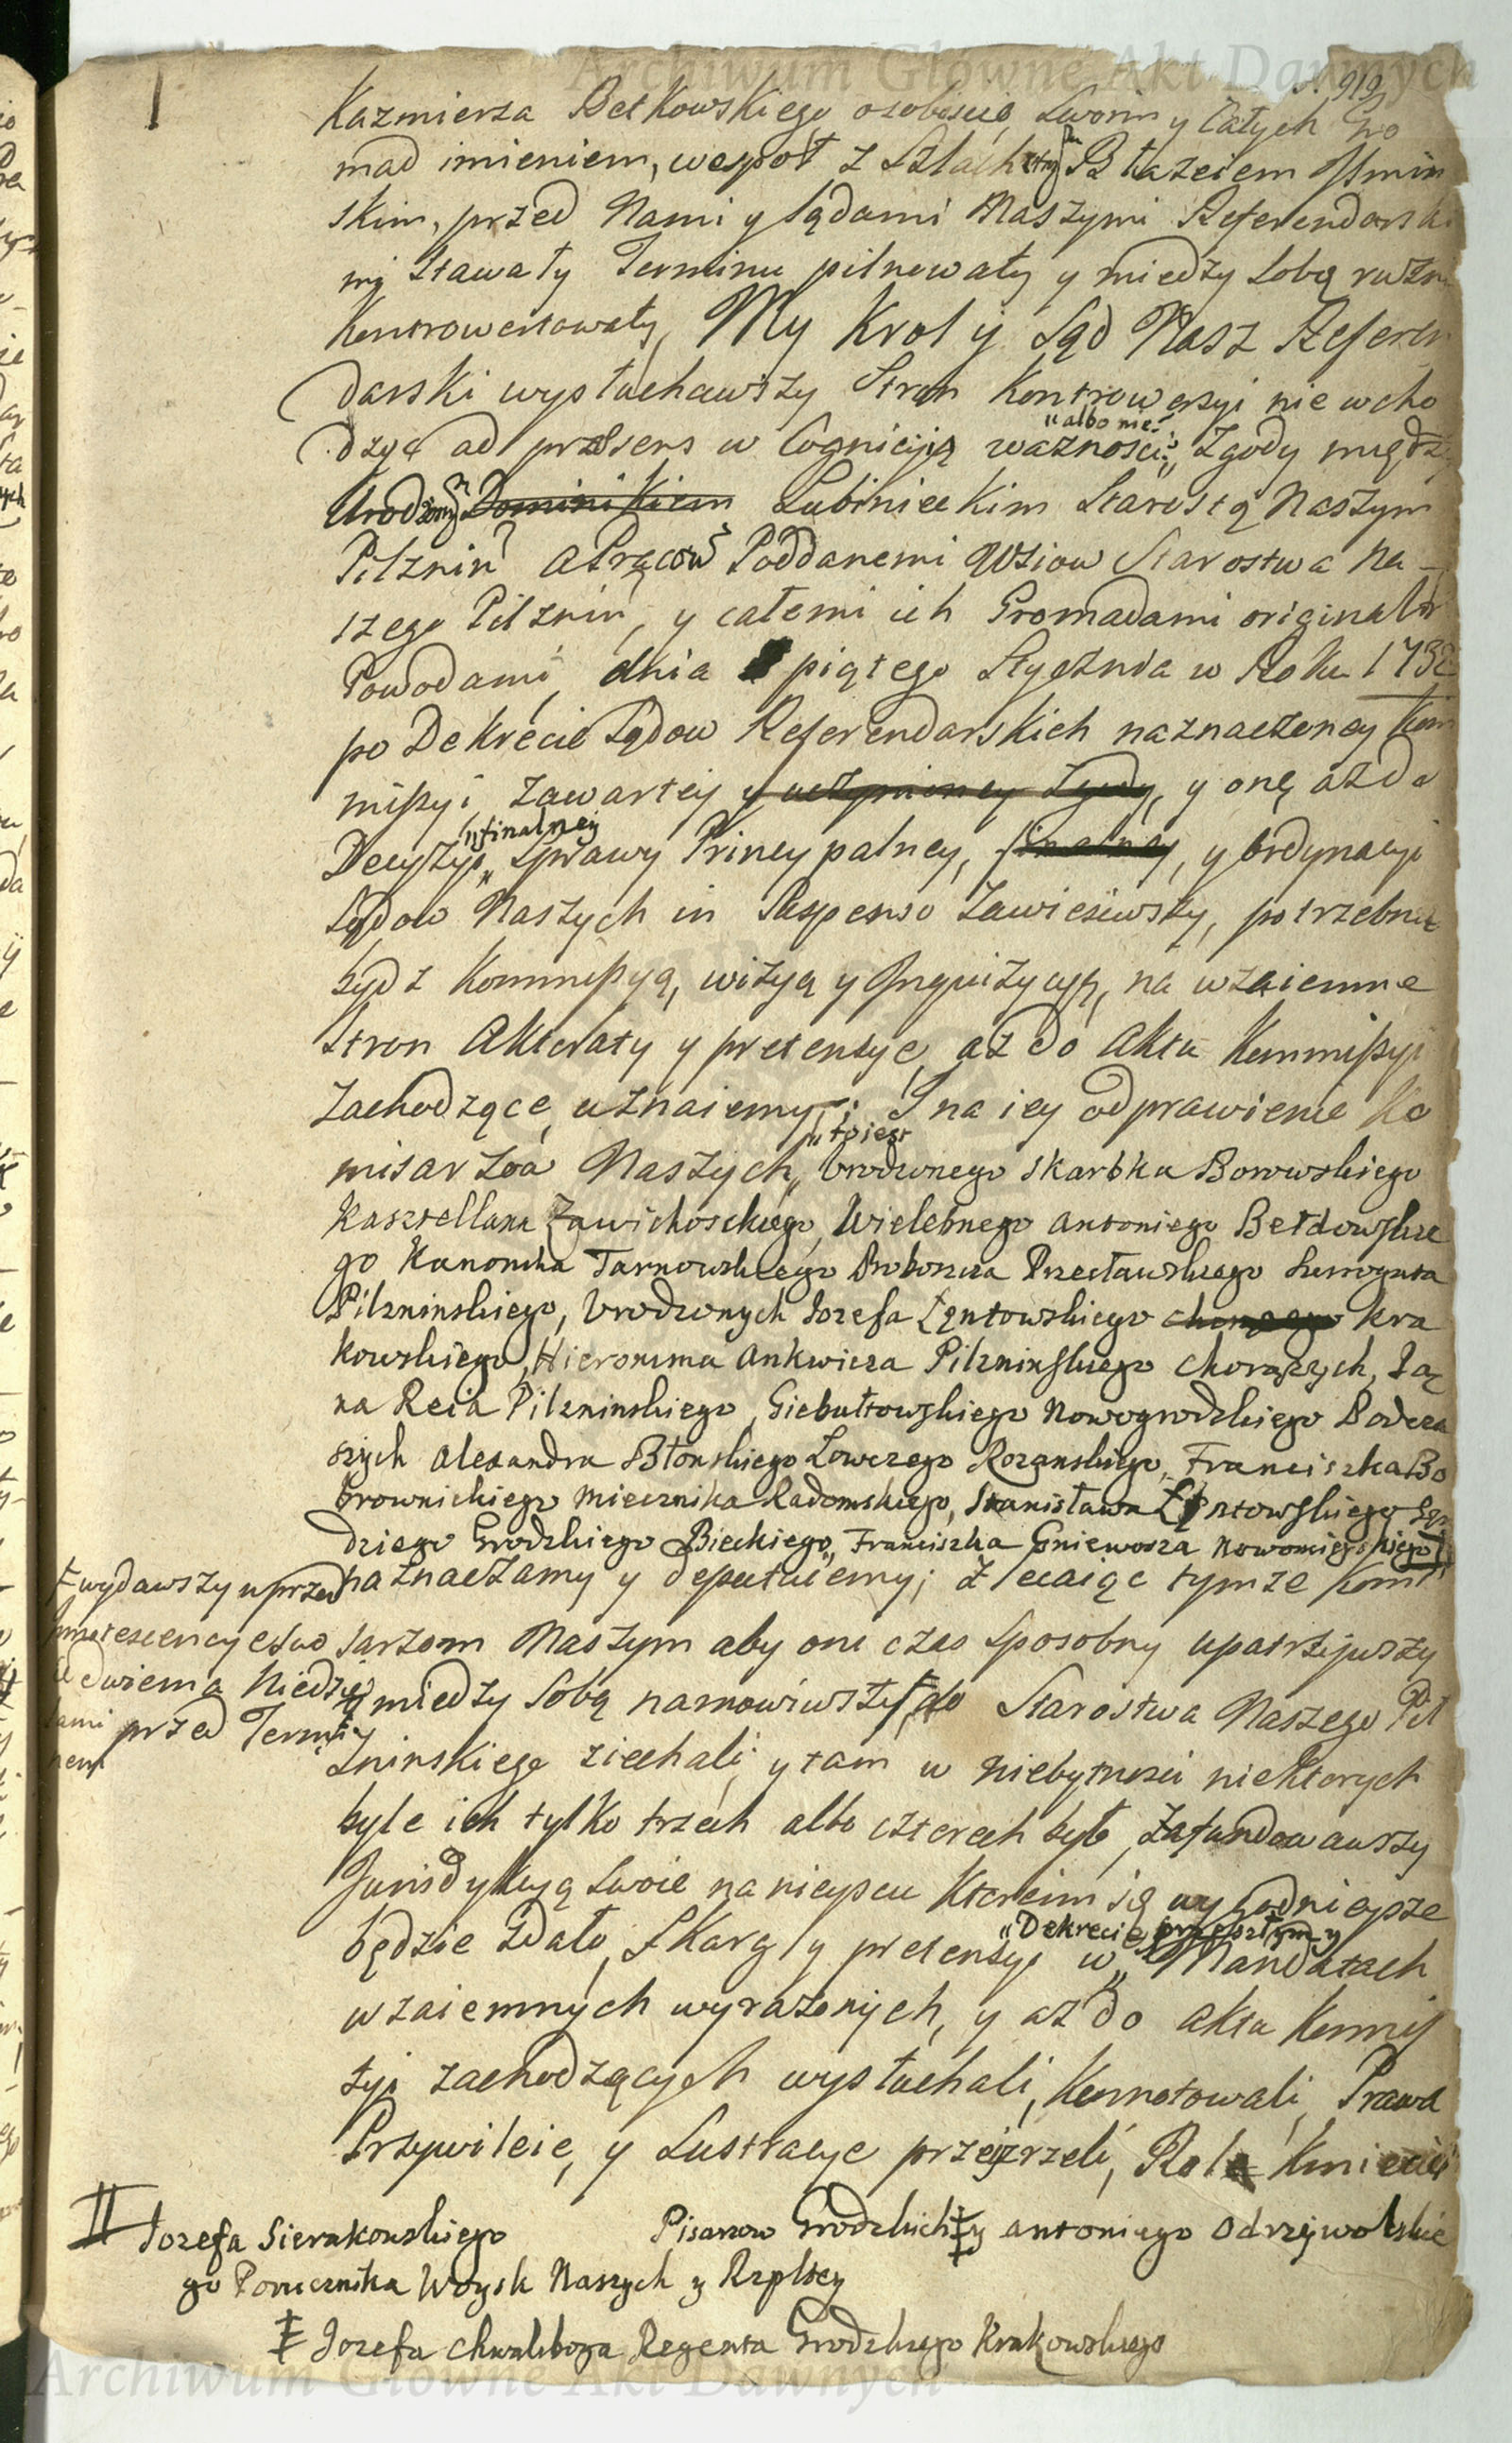 Archiwum Główne Akt Dawnych
919
Kazmierza Betkowskiego osobiscie Swoim y Całych Gro
mad imieniem, wespoł z Szlachetnym Błazeiem Usmin
skim, przed Nami y Sądami Naszymi Referendarski
mi stawały Terminu pilnowały y miedzy sobą
kontrowertowały, My Krol y Sąd Nasz Referen
darski wysłuchawszy Stron Kontrowersyi nie wcho
dząc ad praesens w Cognicyją waznosci „albo nie” Zgody między
Urodzonym Dominikiem Lubinieckim Starostą Naszym
Pilznin a Pracow Poddanemi Wsiow Starostwa Na-
szego Pilznin, y całemi ich Gromadami originalr
Powodami, dnia piątego Stycznia w Roku 1732
po Dekrecie Sądow Referendarskich naznaczoney Kom
missyi zawartey y uczynioney Zgody, y onę asz do
Decyzyi „finalney Sprawy Princypalney, finalney, y ordynacyi
Sądow Naszych in Suspenso zawiesiwszy, potrzebną
bydz Kommissyą, wizyą y Inquizycyą, na wzaiemne
Stron Akktoraty y pretensye, az do Aktu Kommissyi
zachodzące, uznaiemy; I na iey odprawienie Ko
misarzow Naszych „to iest Urodzonego Skarbka Borowskiego
Kasztellana Zawichosckiego, Wielebnego Antoniego Bełdowskie
go Kanonika Tarnowskiego Proboszcza Przecławskiego Surrogata
Pilzninskiego, Urodzonych Iozefa Łętowskiego Kra
kowskiego, Hieronima Ankwicza Pilzninskiego Chorązych, Ia
na Reia Pilzninskiego, Giebułtowskiego Nowogrodzkiego Podcza
szych Alexandra Błonskiego Łowczego Rozanskiego, Franciszka Bo
brownickiego Miecznika Radomskiego, Stanisława Łętowskiego Sę
dziego Grodzkiego Bieckiego, Franciszka Gniewosza Nowomieyskiego
naznaczamy y deputuiemy; Zlecaiąc tymze Komi
sarzom Naszym aby oni czas sposobny upatrzywszy
y miedzy sobą namowiwszy do Starostwa Naszego Pil
zninskiego ziechali, y tam w niebytnosci niektorych
byle ich tylko trzech albo czterech było, zafundowawszy
Jurisdykcyą swoie na mieyscu ktorem się wygodnieysze
będzie zdało, Skarg y pretensyi w „Dekrecie przeszłym y Mandatach
wzaiemnych wyrazonych, y az do aktu Kommis
syi zachodzących wysłuchali, Konnotowali, Prawa
Przywileie, y Lustracye przeyzrzeli, Role Kmiecie
wydawszy uprzed
Innotescencye swo
ie dwiema Niedzie
lami przed Termi
nem
Iozefa Sierakowskiego Pisarzow Grodzkich y Antoniego Odrzywolskie
go Porucznika Woysk Naszych y Rzpltey
Iozefa Chwaliboga Regenta Grodzkiego Krakowskiego
Archiwum Główne Akt Dawnych